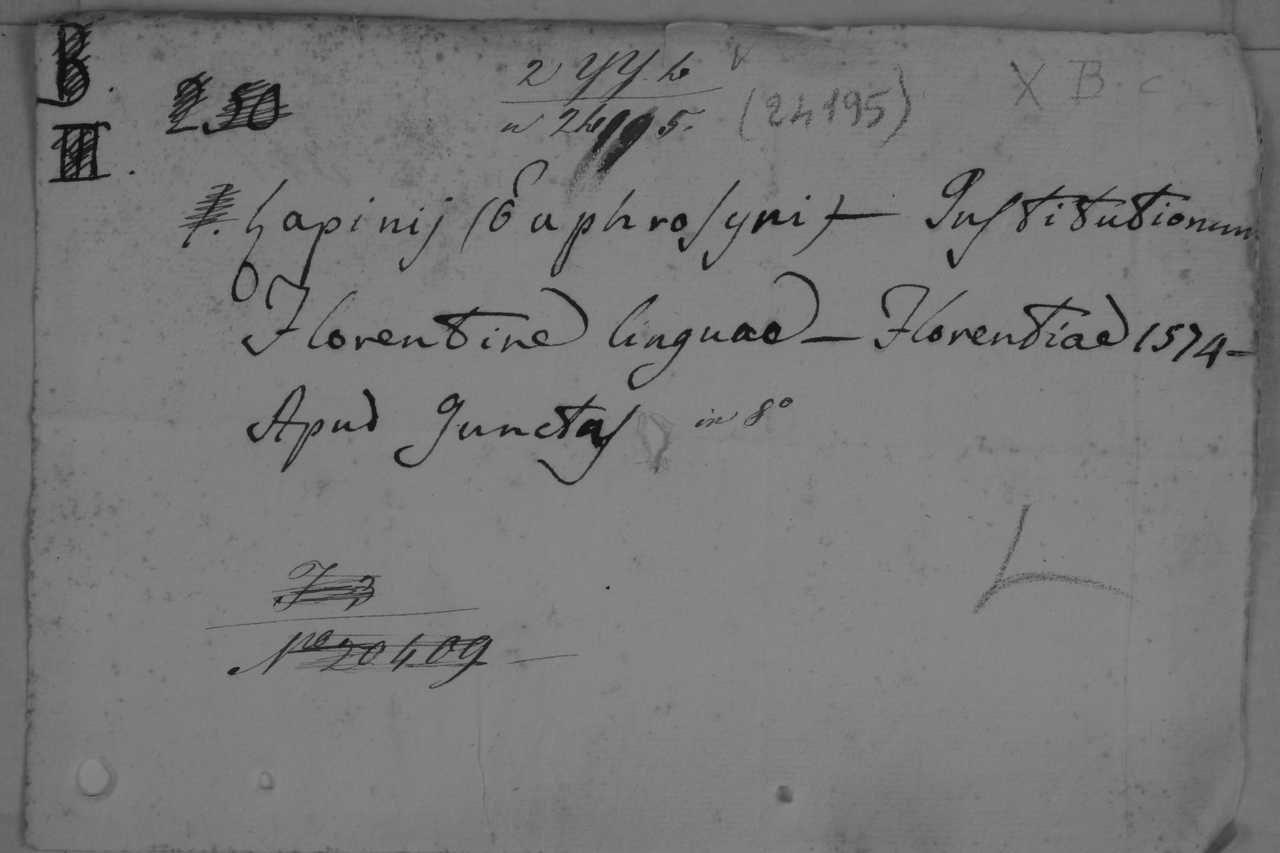 B.
2 50
2 YY. b
(24195)
X B. c
n 24195.
III.
Lapinij (Euphrosyni) — Institutionum
Florentine linguae — Florentiae 1574 —
Apud Junctas in 8°
L
N.ro 20409 —